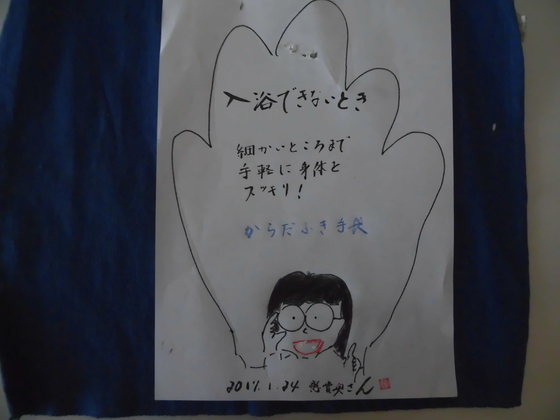 入浴できないとき
細かいところまで
手軽に身体を
スッキリ!
からだふき手袋
1.24